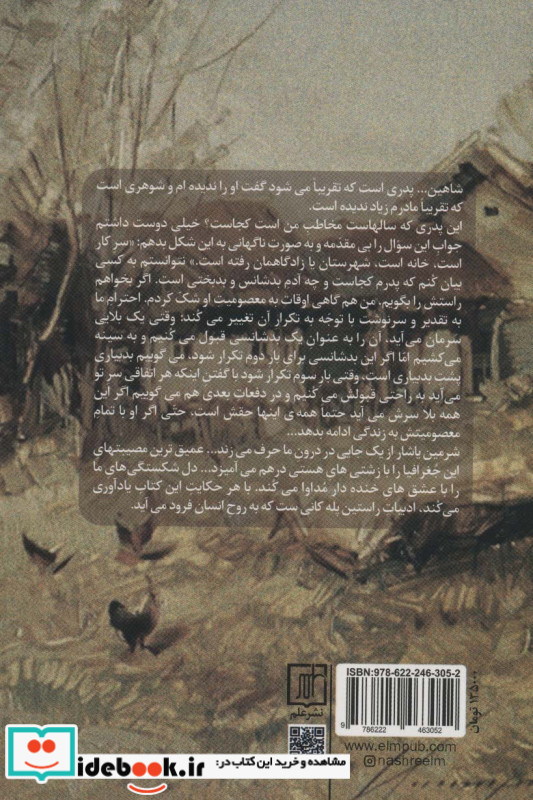 شاهین... پدری است که تقریباً می شود گفت او را ندیده ام و شوهری است
که تقریباً مادرم زیاد ندیده است.
این پدری که سالهاست مخاطب من است کجاست؟ خیلی دوست داشتم
جواب این سؤال را بی مقدمه و به صورت ناگهانی به این شکل بدهم: «سر کار
است، خانه است، شهرستان یا زادگاهمان رفته است.» نتوانستم به کسی
بیان کنم که پدرم کجاست و چه آدم بدشانس و بدبختی است. اگر بخواهم
راستش را بگویم، من هم گاهی اوقات به معصومیت او شک کردم. احترام ما
به تقدیر و سرنوشت با توجه به تکرار آن تغییر می کند: وقتی یک بلایی
سرمان می آید، آن را به عنوان یک بدشانسی قبول می کنیم و به سینه
می کشیم امّا اگر این بدشانسی برای بار دوم تکرار شود، می گوییم بدبیاری
پشت بدبیاری است، وقتی بار سوم تکرار شود با گفتن اینکه هر اتفاقی سر تو
می آید به راحتی قبولش می کنیم و در دفعات بعدی هم می گوییم اگر این
همه بلا سرش می آید حتماً همه ی اینها حقش است، حتّی اگر او با تمام
معصومیتش به زندگی ادامه بدهد...
شرمین یاشار از یک جایی در درون ما حرف می زند... عمیق ترین مصیبتهای
این جُغرافیا را با زشتی های هستی درهم می آمیزد... دل شکستگی های ما
را با عشق های خنده دار مُداوا می کند. با هر حکایت این کتاب یادآوری
می کند. ادبیات راستین پله کانی ست که به روح انسان فرود می آید.
ISBN:978-622-246-305-2
9 786222 463052
www.elmpub.com
nashreelm
نشر علم
تومان
idebook.ir
مشاهده و خرید این کتاب در: